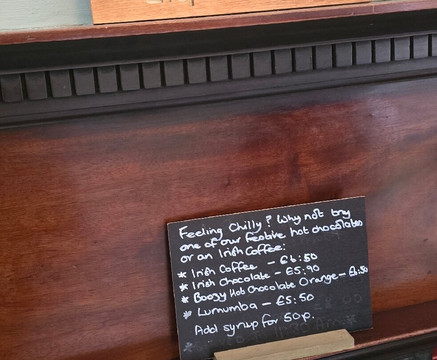 Feeling Chilly? Why not try
one of our festive hot chocolates
or an Irish Coffee:
* Irish Coffee - £6:50
* Irish Chocolate - £5:90
* Boozy Hot Chocolate Orange - £6:50
* Lumumba - £5:50
Add syrup for 50p.